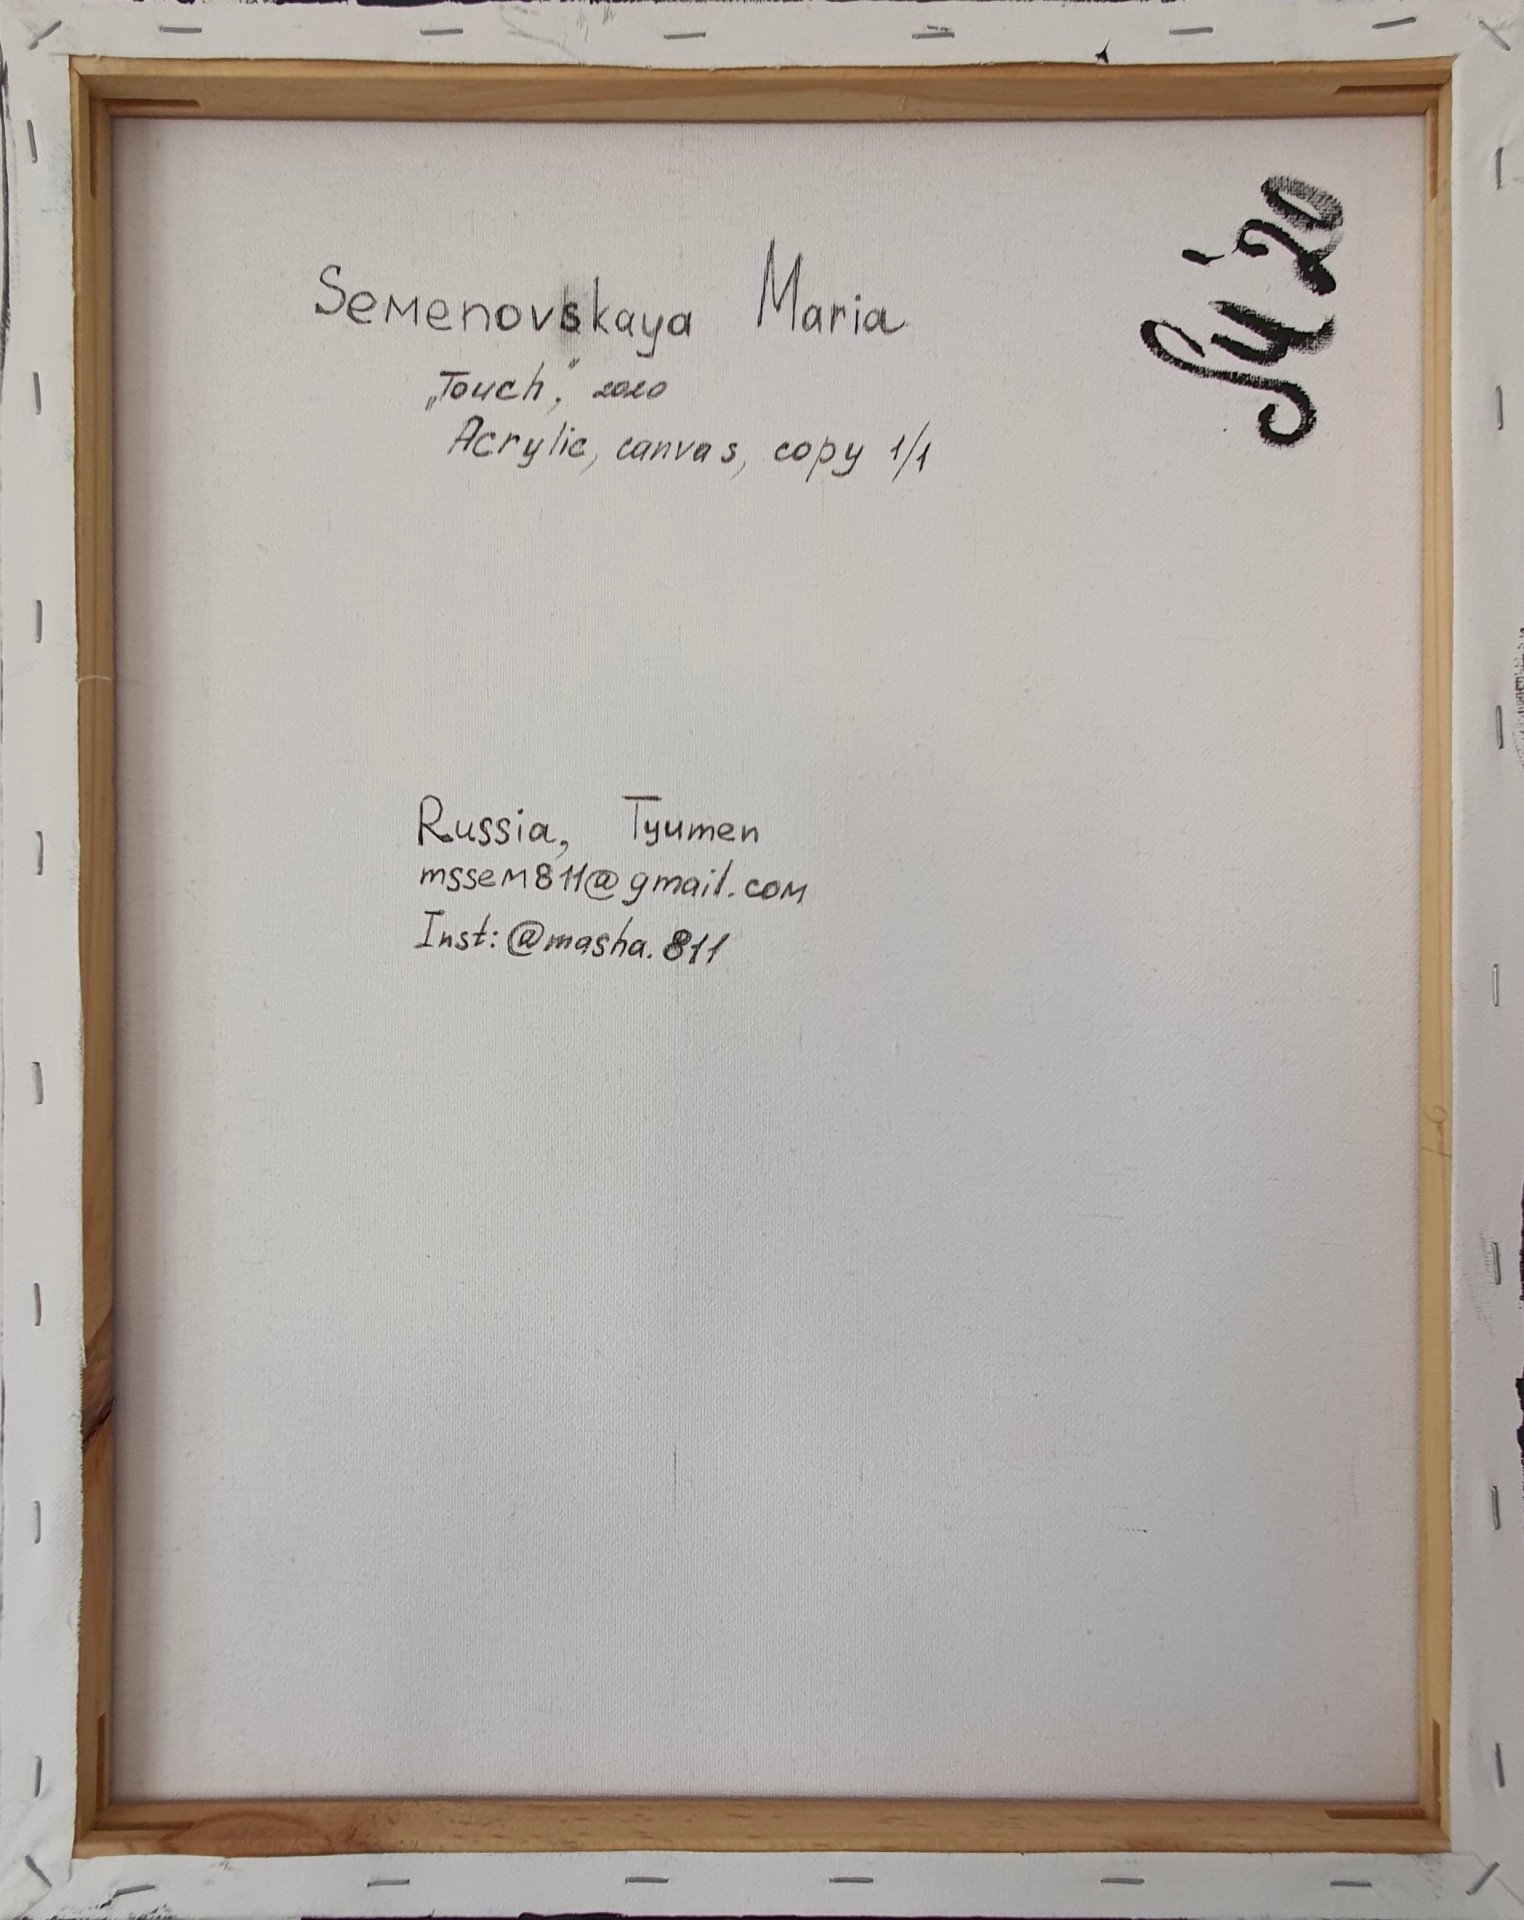 Semenovskaya Maria
„Touch", 2020
Acrylic, canvas, copy 1/1
Russia, Tyumen
mssem811@gmail.com
Inst: @masha.811
'20